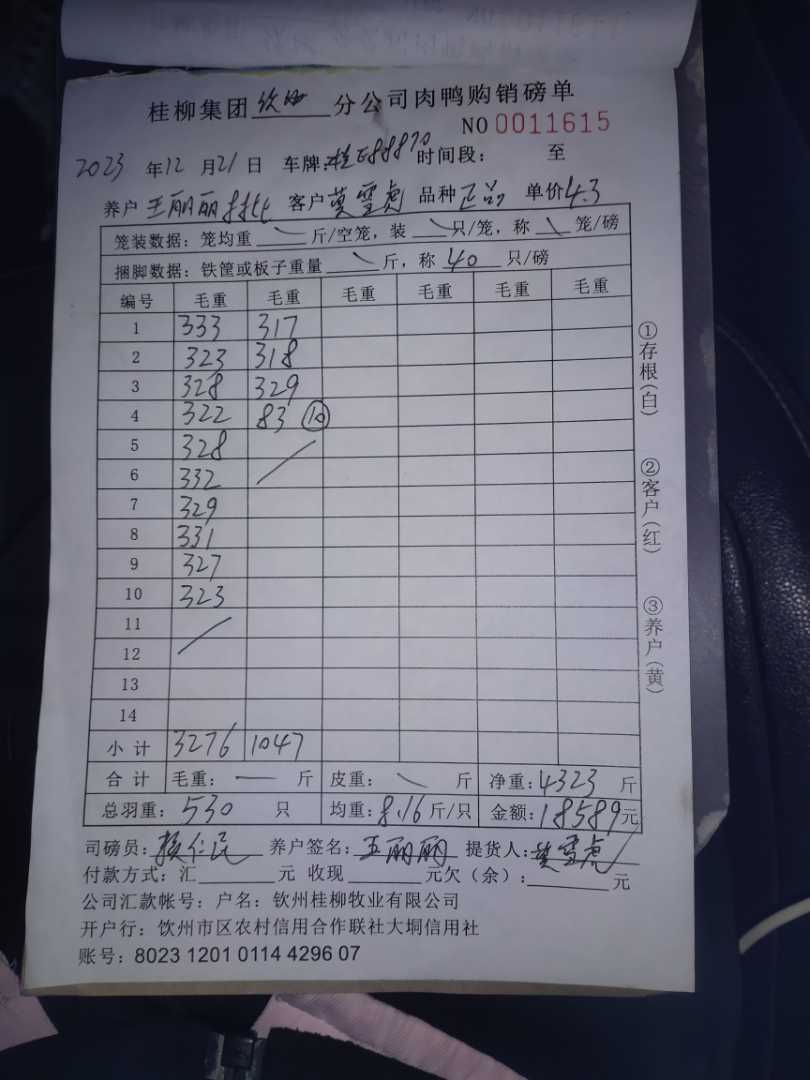 桂柳集团钦州分公司肉鸭购销磅单
NO 0011615
2023年12月21日 车牌: 时间段: 至
养户 王丽丽 客户 莫雪虎 品种 正品 单价 4.3
笼装数据:笼均重 斤/空笼,装 只/笼,称 笼/磅
捆脚数据:铁筐或板子重量 斤,称 40 只/磅
编号 毛重 毛重 毛重 毛重 毛重 毛重
1 333 317
2 323 318
3 328 329
4 322 83 10
5 328
6 332
7 329
8 331
9 327
10 323
11
12
13
14
小计 3276 1047
合计 毛重: 斤 皮重: 斤 净重:4323 斤
总羽重:530 只 均重:8.16 斤/只 金额:18589元
司磅员: 养户签名:王丽丽 提货人:莫雪虎
付款方式:汇 元 收现 元欠(余): 元
公司汇款帐号:户名:钦州桂柳牧业有限公司
开户行:钦州市区农村信用合作联社大垌信用社
账号:8023 1201 0114 4296 07
①存根(白)
②客户(红)
③养户(黄)